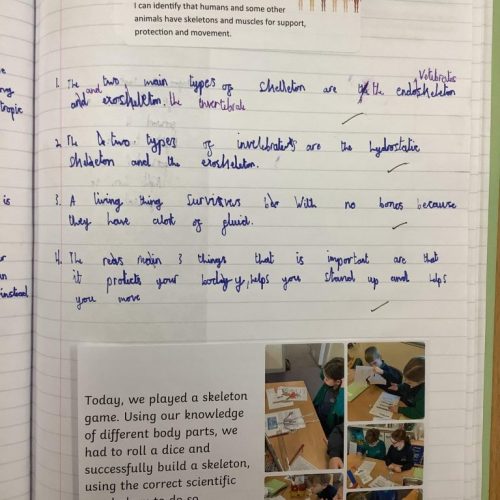 I can identify that humans and some other
animals have skeletons and muscles for support,
protection and movement.
Votibrates
1. The two main types of skelleton are the endoskeleton
and and exoskeleton. the invertibrate
2. The two types of invelebrates are the hydrostatic
skeleton and the exoskeleton.
3. A living thing survives with no bones because
they have alot of fluid.
4. The main 3 things that is important are that
it protects your body, helps you stand up and helps
you move
Today, we played a skeleton
game. Using our knowledge
of different body parts, we
had to roll a dice and
successfully build a skeleton,
using the correct scientific
ny
tropic
is
instead